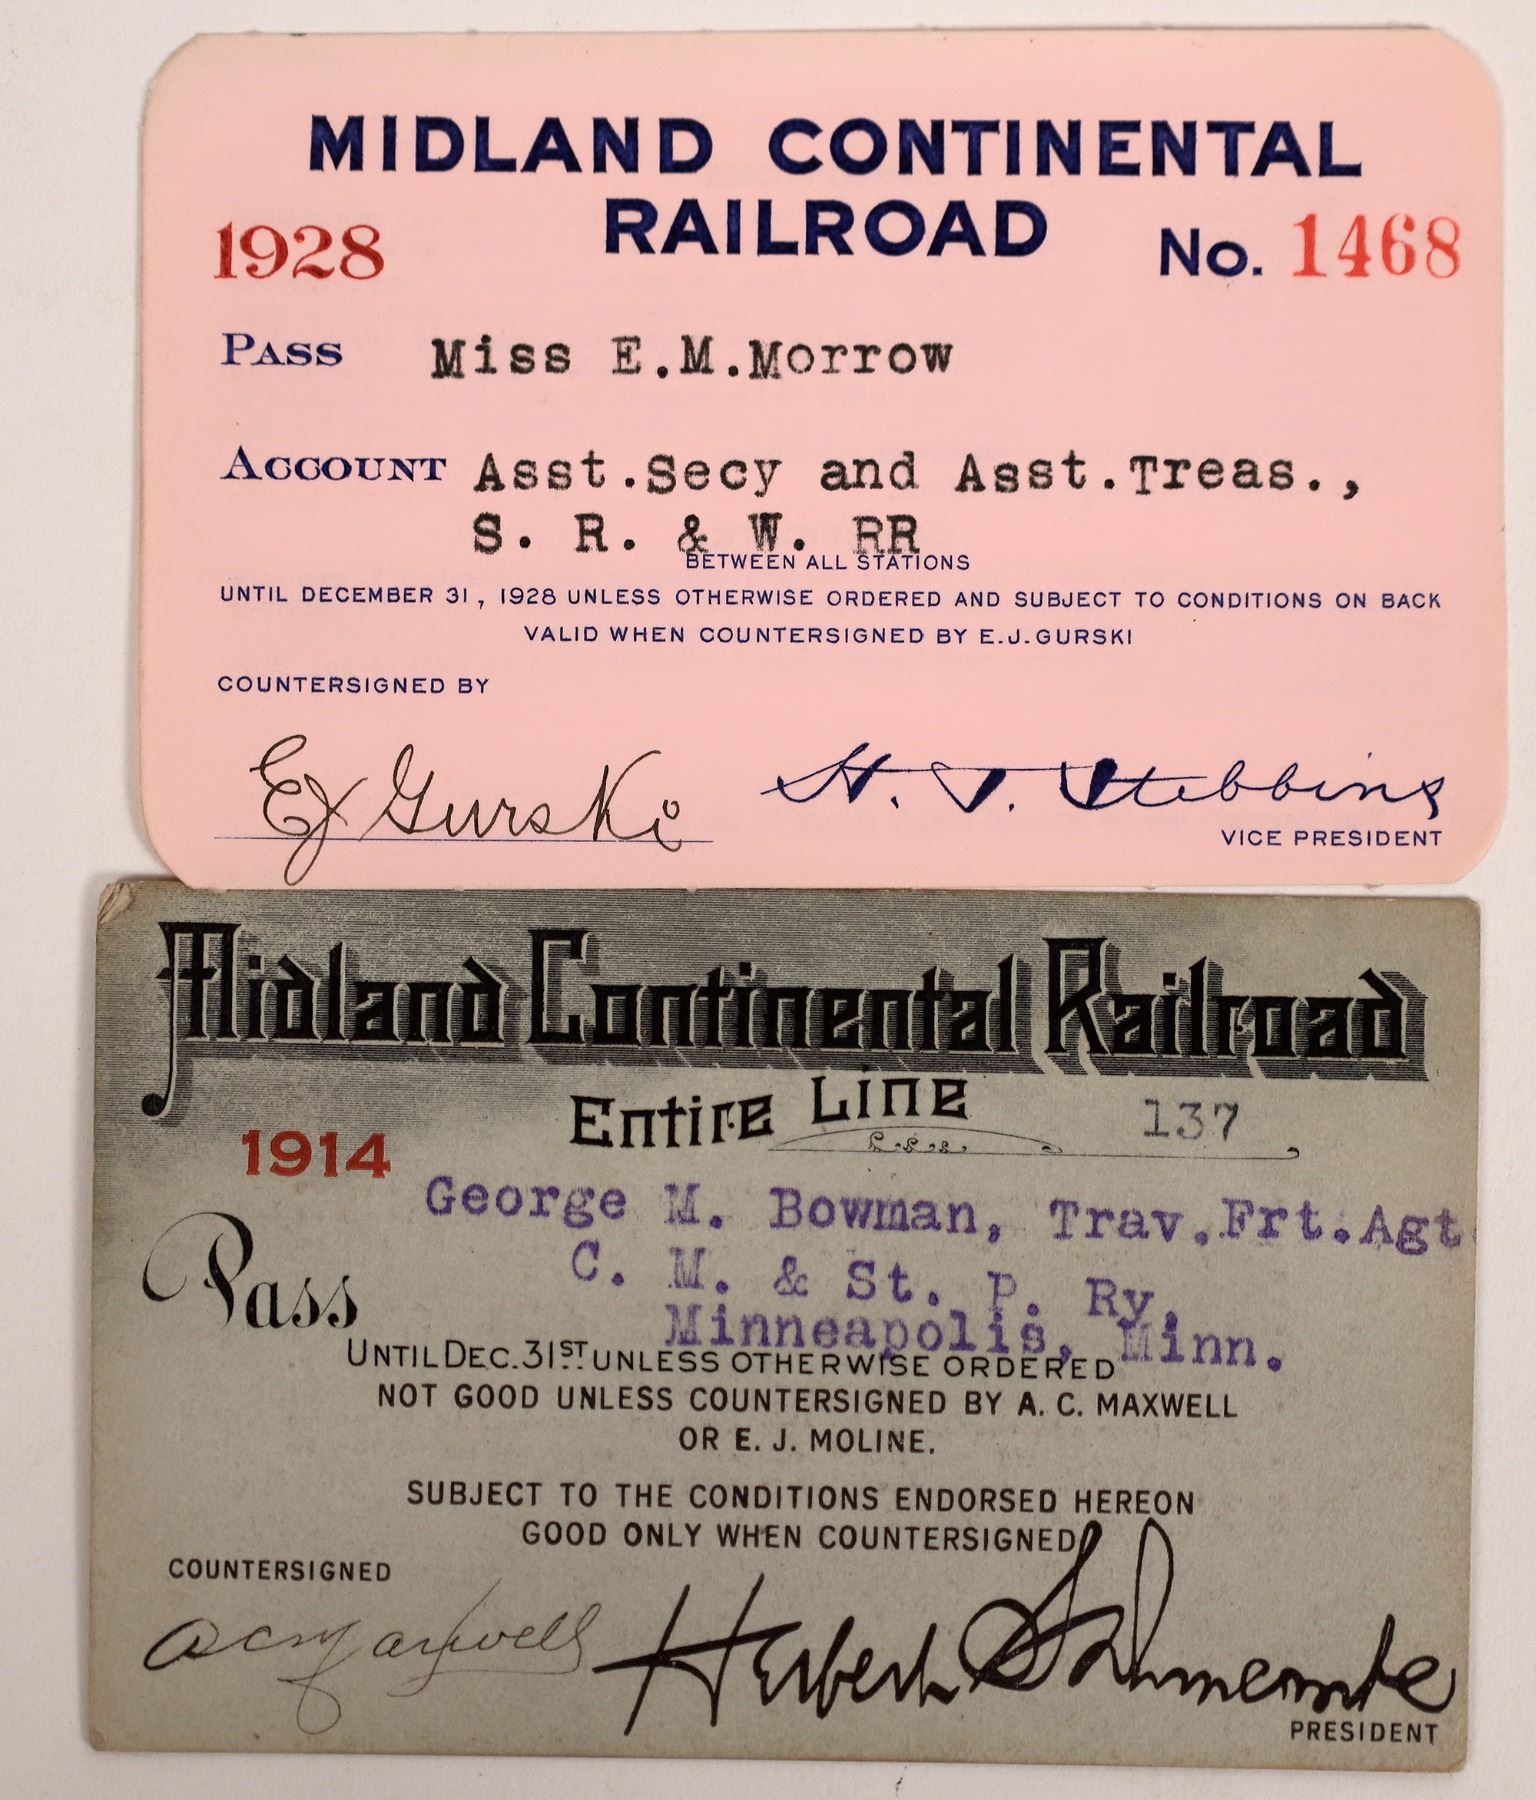 MIDLAND CONTINENTAL
RAILROAD
1928
No. 1468
PASS Miss E.M.Morrow
ACCOUNT Asst.Secy and Asst.Treas.,
S. R. & W. RR
BETWEEN ALL STATIONS
UNTIL DECEMBER 31, 1928 UNLESS OTHERWISE ORDERED AND SUBJECT TO CONDITIONS ON BACK
VALID WHEN COUNTERSIGNED BY E.J.GURSKI
COUNTERSIGNED BY
EJ Gurski
H. S. Stebbins
VICE PRESIDENT
Midland Continental Railroad
Entire Line
137
1914
George M. Bowman, Trav.Frt.Agt
C. M. & St. P. Ry.
Minneapolis, Minn.
Pass
UNTIL DEC. 31ST UNLESS OTHERWISE ORDERED
NOT GOOD UNLESS COUNTERSIGNED BY A. C. MAXWELL
OR E. J. MOLINE.
SUBJECT TO THE CONDITIONS ENDORSED HEREON
GOOD ONLY WHEN COUNTERSIGNED
COUNTERSIGNED
ACMaxwell
Herbert
PRESIDENT